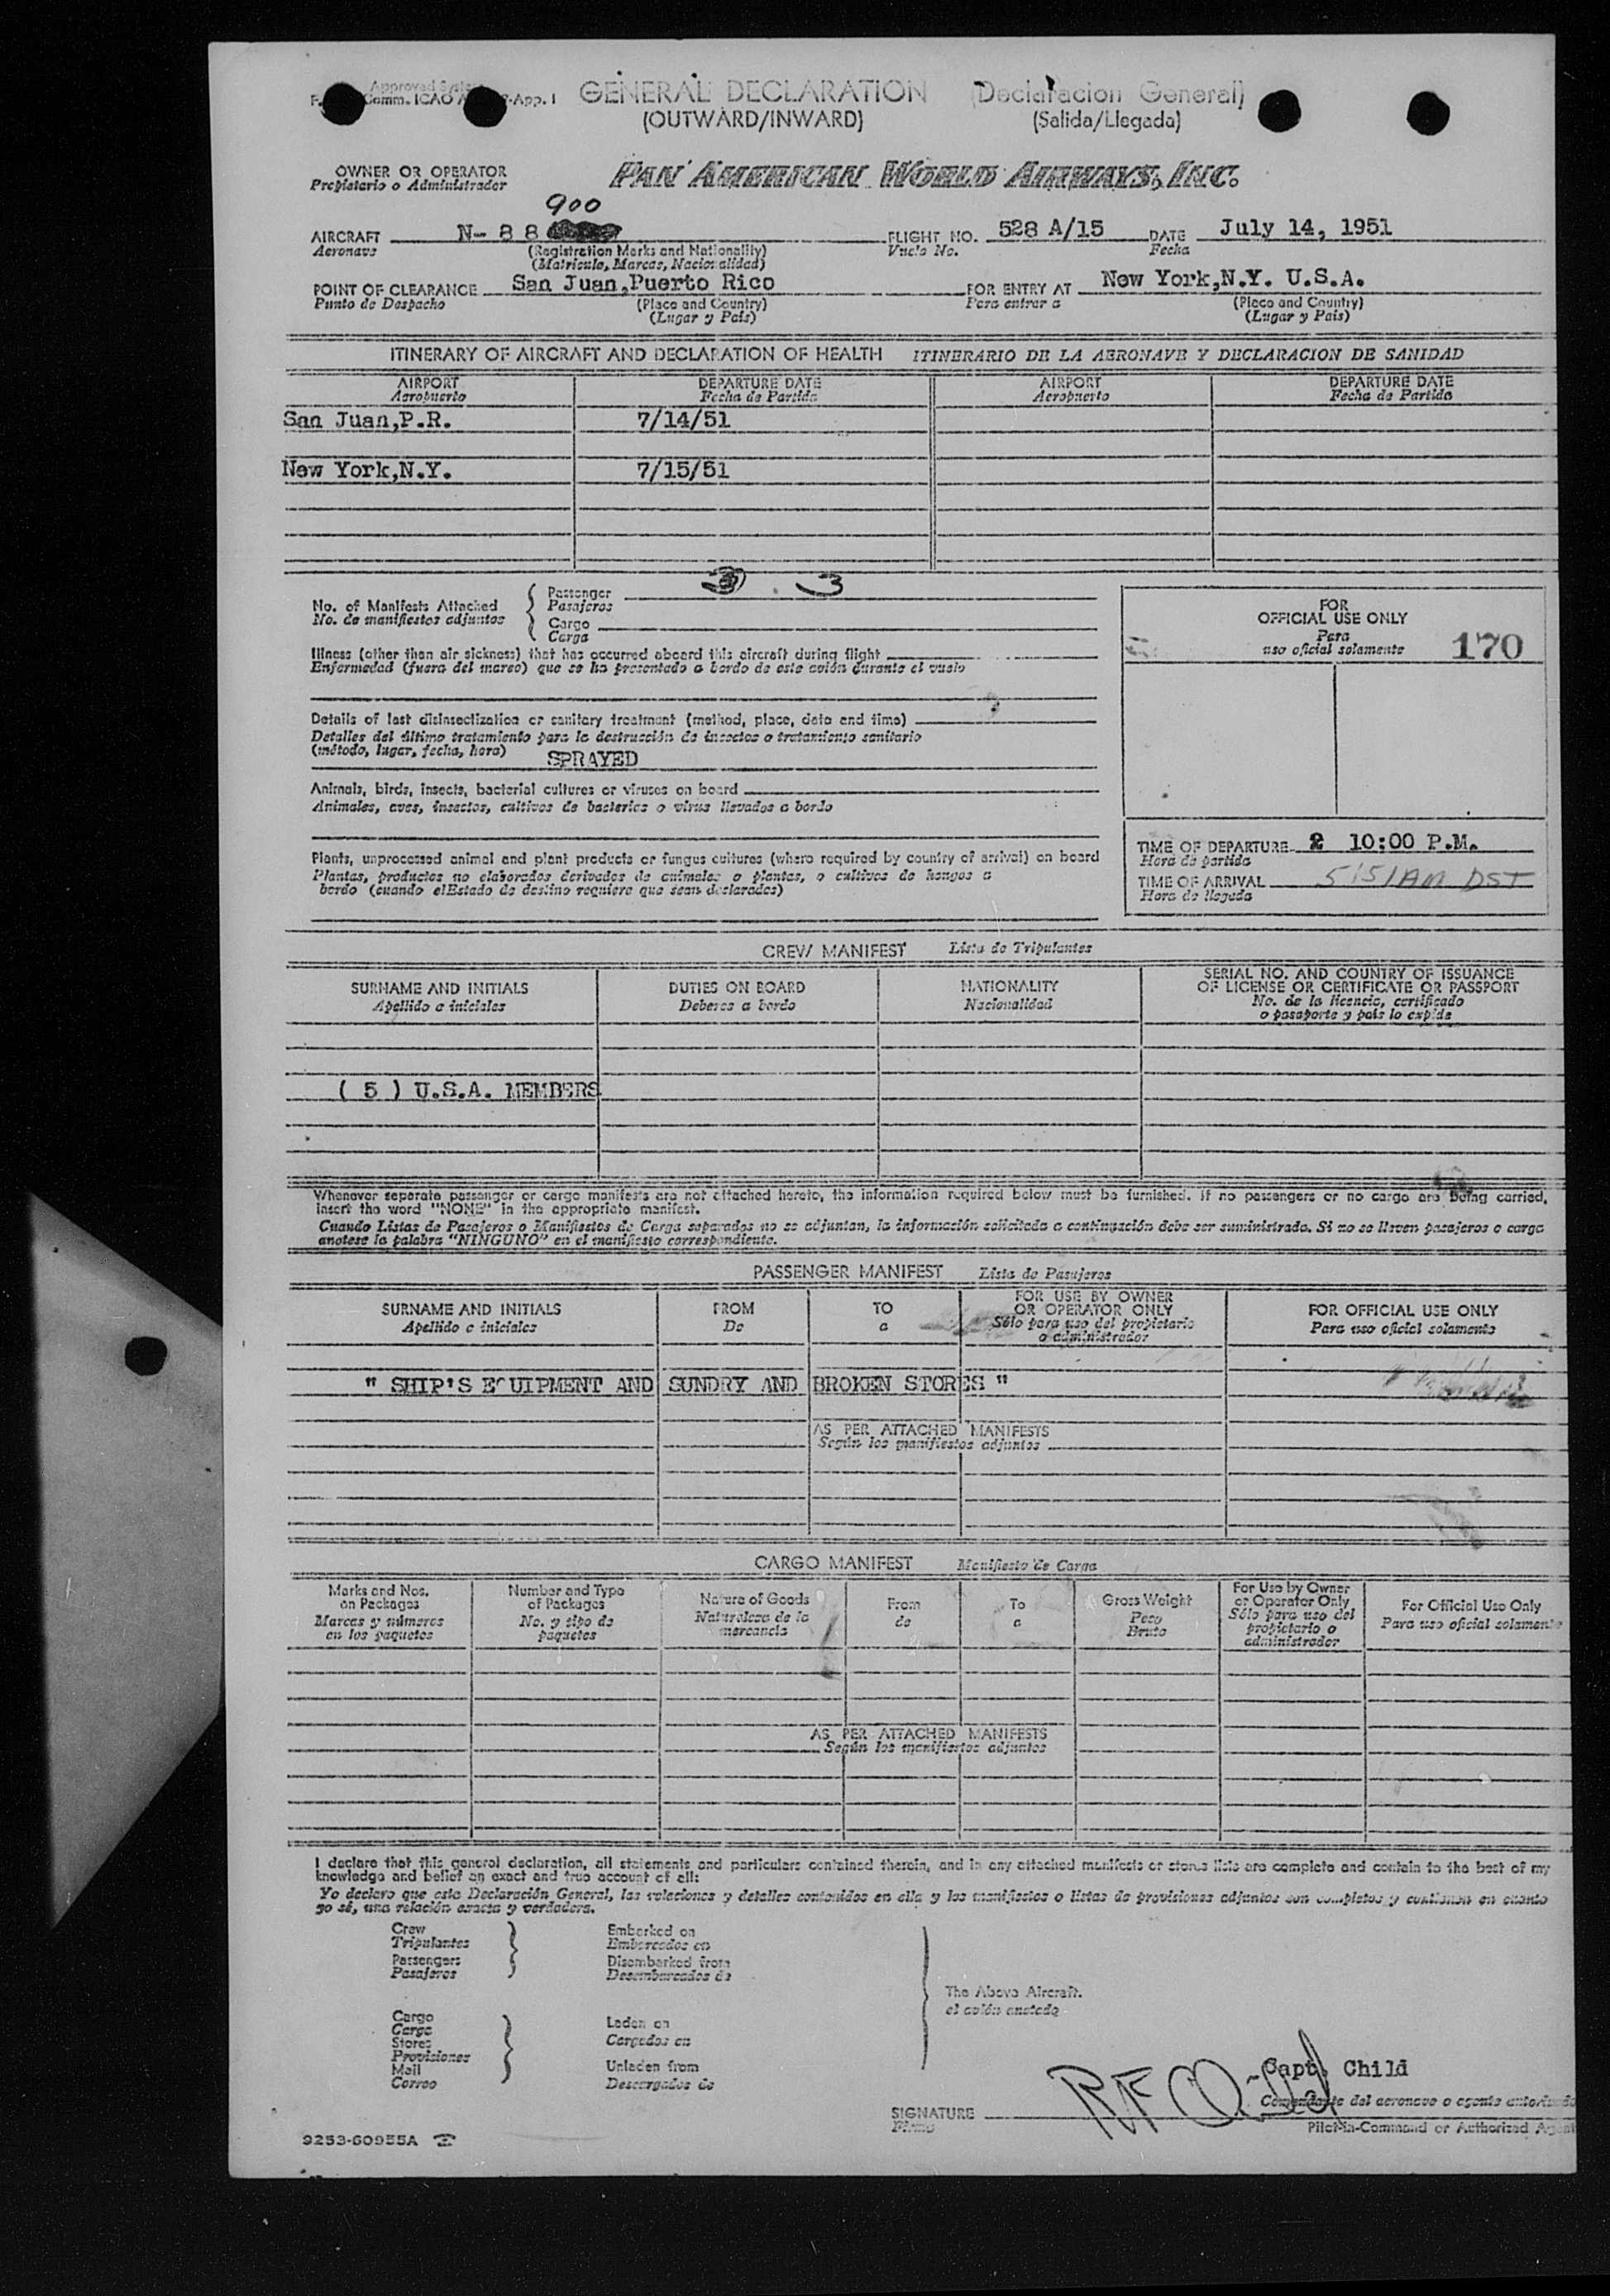 Approved
Comm. ICAO App. 1
GENERAL DECLARATION (Declaracion General)
(OUTWARD/INWARD) (Salida/Llegada)
OWNER OR OPERATOR
Propietario o Administrador
PAN AMERICAN WORLD AIRWAYS, INC.
900
AIRCRAFT N- 8 8 FLIGHT NO. 528 A/15 DATE July 14, 1951
Aeronave (Registration Marks and Nationality) Vuelo No. Fecha
(Matricula, Marcas, Nacionalidad)
POINT OF CLEARANCE San Juan,Puerto Rico FOR ENTRY AT New York,N.Y. U.S.A.
Punto de Despacho (Place and Country) Para entrar a (Place and Country)
(Lugar y Pais) (Lugar y Pais)
ITINERARY OF AIRCRAFT AND DECLARATION OF HEALTH ITINERARIO DE LA AERONAVE Y DECLARACION DE SANIDAD
AIRPORT DEPARTURE DATE AIRPORT DEPARTURE DATE
Aeropuerto Fecha de Partida Aeropuerto Fecha de Partida
San Juan,P.R. 7/14/51
New York,N.Y. 7/15/51
No. of Manifests Attached
No. de manifiestos adjuntos
Passenger 3
Pasajeros
Cargo
Carga
FOR
OFFICIAL USE ONLY
Para
uso oficial solamente
170
Illness (other than air sickness) that has occurred aboard this aircraft during flight
Enfermedad (fuera del mareo) que se ha presentado a bordo de este avión durante el vuelo
Details of last disinsectization or sanitary treatment (method, place, date and time)
Detalles del último tratamiento para la destrucción de insectos o tratamiento sanitario
(método, lugar, fecha, hora) SPRAYED
Animals, birds, insects, bacterial cultures or viruses on board
Animales, aves, insectos, cultivos de bacterias o virus llevados a bordo
Plants, unprocessed animal and plant products or fungus cultures (where required by country of arrival) on board
Plantas, productos no elaborados derivados de animales o plantas, o cultivos de hongos a
bordo (cuando elEstado de destino requiere que sean declarados)
TIME OF DEPARTURE 10:00 P.M.
Hora de partida
TIME OF ARRIVAL 5:51 AM DST
Hora de llegada
CREW MANIFEST Lista de Tripulantes
SURNAME AND INITIALS DUTIES ON BOARD NATIONALITY SERIAL NO. AND COUNTRY OF ISSUANCE
OF LICENSE OR CERTIFICATE OR PASSPORT
Apellido e iniciales Deberes a bordo Nacionalidad No. de la licencia, certificado
o pasaporte y país lo expide
( 5 ) U.S.A. MEMBERS
Whenever separate passenger or cargo manifests are not attached hereto, the information required below must be furnished. If no passengers or no cargo are being carried,
insert the word "NONE" in the appropriate manifest.
Cuando Listas de Pasajeros o Manifiestos de Carga separados no se adjuntan, la información solicitada a continuación debe ser suministrada. Si no se lleven pasajeros o carga
anotese la palabra "NINGUNO" en el manifiesto correspondiente.
PASSENGER MANIFEST Lista de Pasajeros
SURNAME AND INITIALS FROM TO FOR USE BY OWNER
OR OPERATOR ONLY FOR OFFICIAL USE ONLY
Apellido e iniciales De a Sólo para uso del propietario
o administrador Para uso oficial solamente
" SHIP'S EQUIPMENT AND SUNDRY AND BROKEN STORES "
AS PER ATTACHED MANIFESTS
Según los manifiestos adjuntos
CARGO MANIFEST Manifiesto de Carga
Marks and Nos.
on Packages
Marcas y números
en los paquetes
Number and Type
of Packages
No. y tipo de
paquetes
Nature of Goods
Naturaleza de la
mercancia
From
de
To
a
Gross Weight
Peso
Bruto
For Use by Owner
or Operator Only
Sólo para uso del
propietario o
administrador
For Official Use Only
Para uso oficial solamente
AS PER ATTACHED MANIFESTS
Según los manifiestos adjuntos
I declare that this general declaration, all statements and particulars contained therein, and in any attached manifests or stores lists are complete and contain to the best of my
knowledge and belief an exact and true account of all:
Yo declaro que esta Declaración General, las relaciones y detalles contenidos en ella y los manifiestos o listas de provisiones adjuntos son completos y contienen en cuanto
yo sé, una relación exacta y verdadera.
Crew
Tripulantes
Passengers
Pasajeros
Embarked on
Embarcados en
Disembarked from
Desembarcados de
The Above Aircraft.
el avión anotado
Cargo
Carga
Stores
Provisiones
Mail
Correo
Laden on
Cargados en
Unladen from
Descargados de
Capt. Child
RF Child
Comandante del aeronave o agente autorizado
SIGNATURE
Firma
Pilot-in-Command or Authorized Agent
9253-60955A